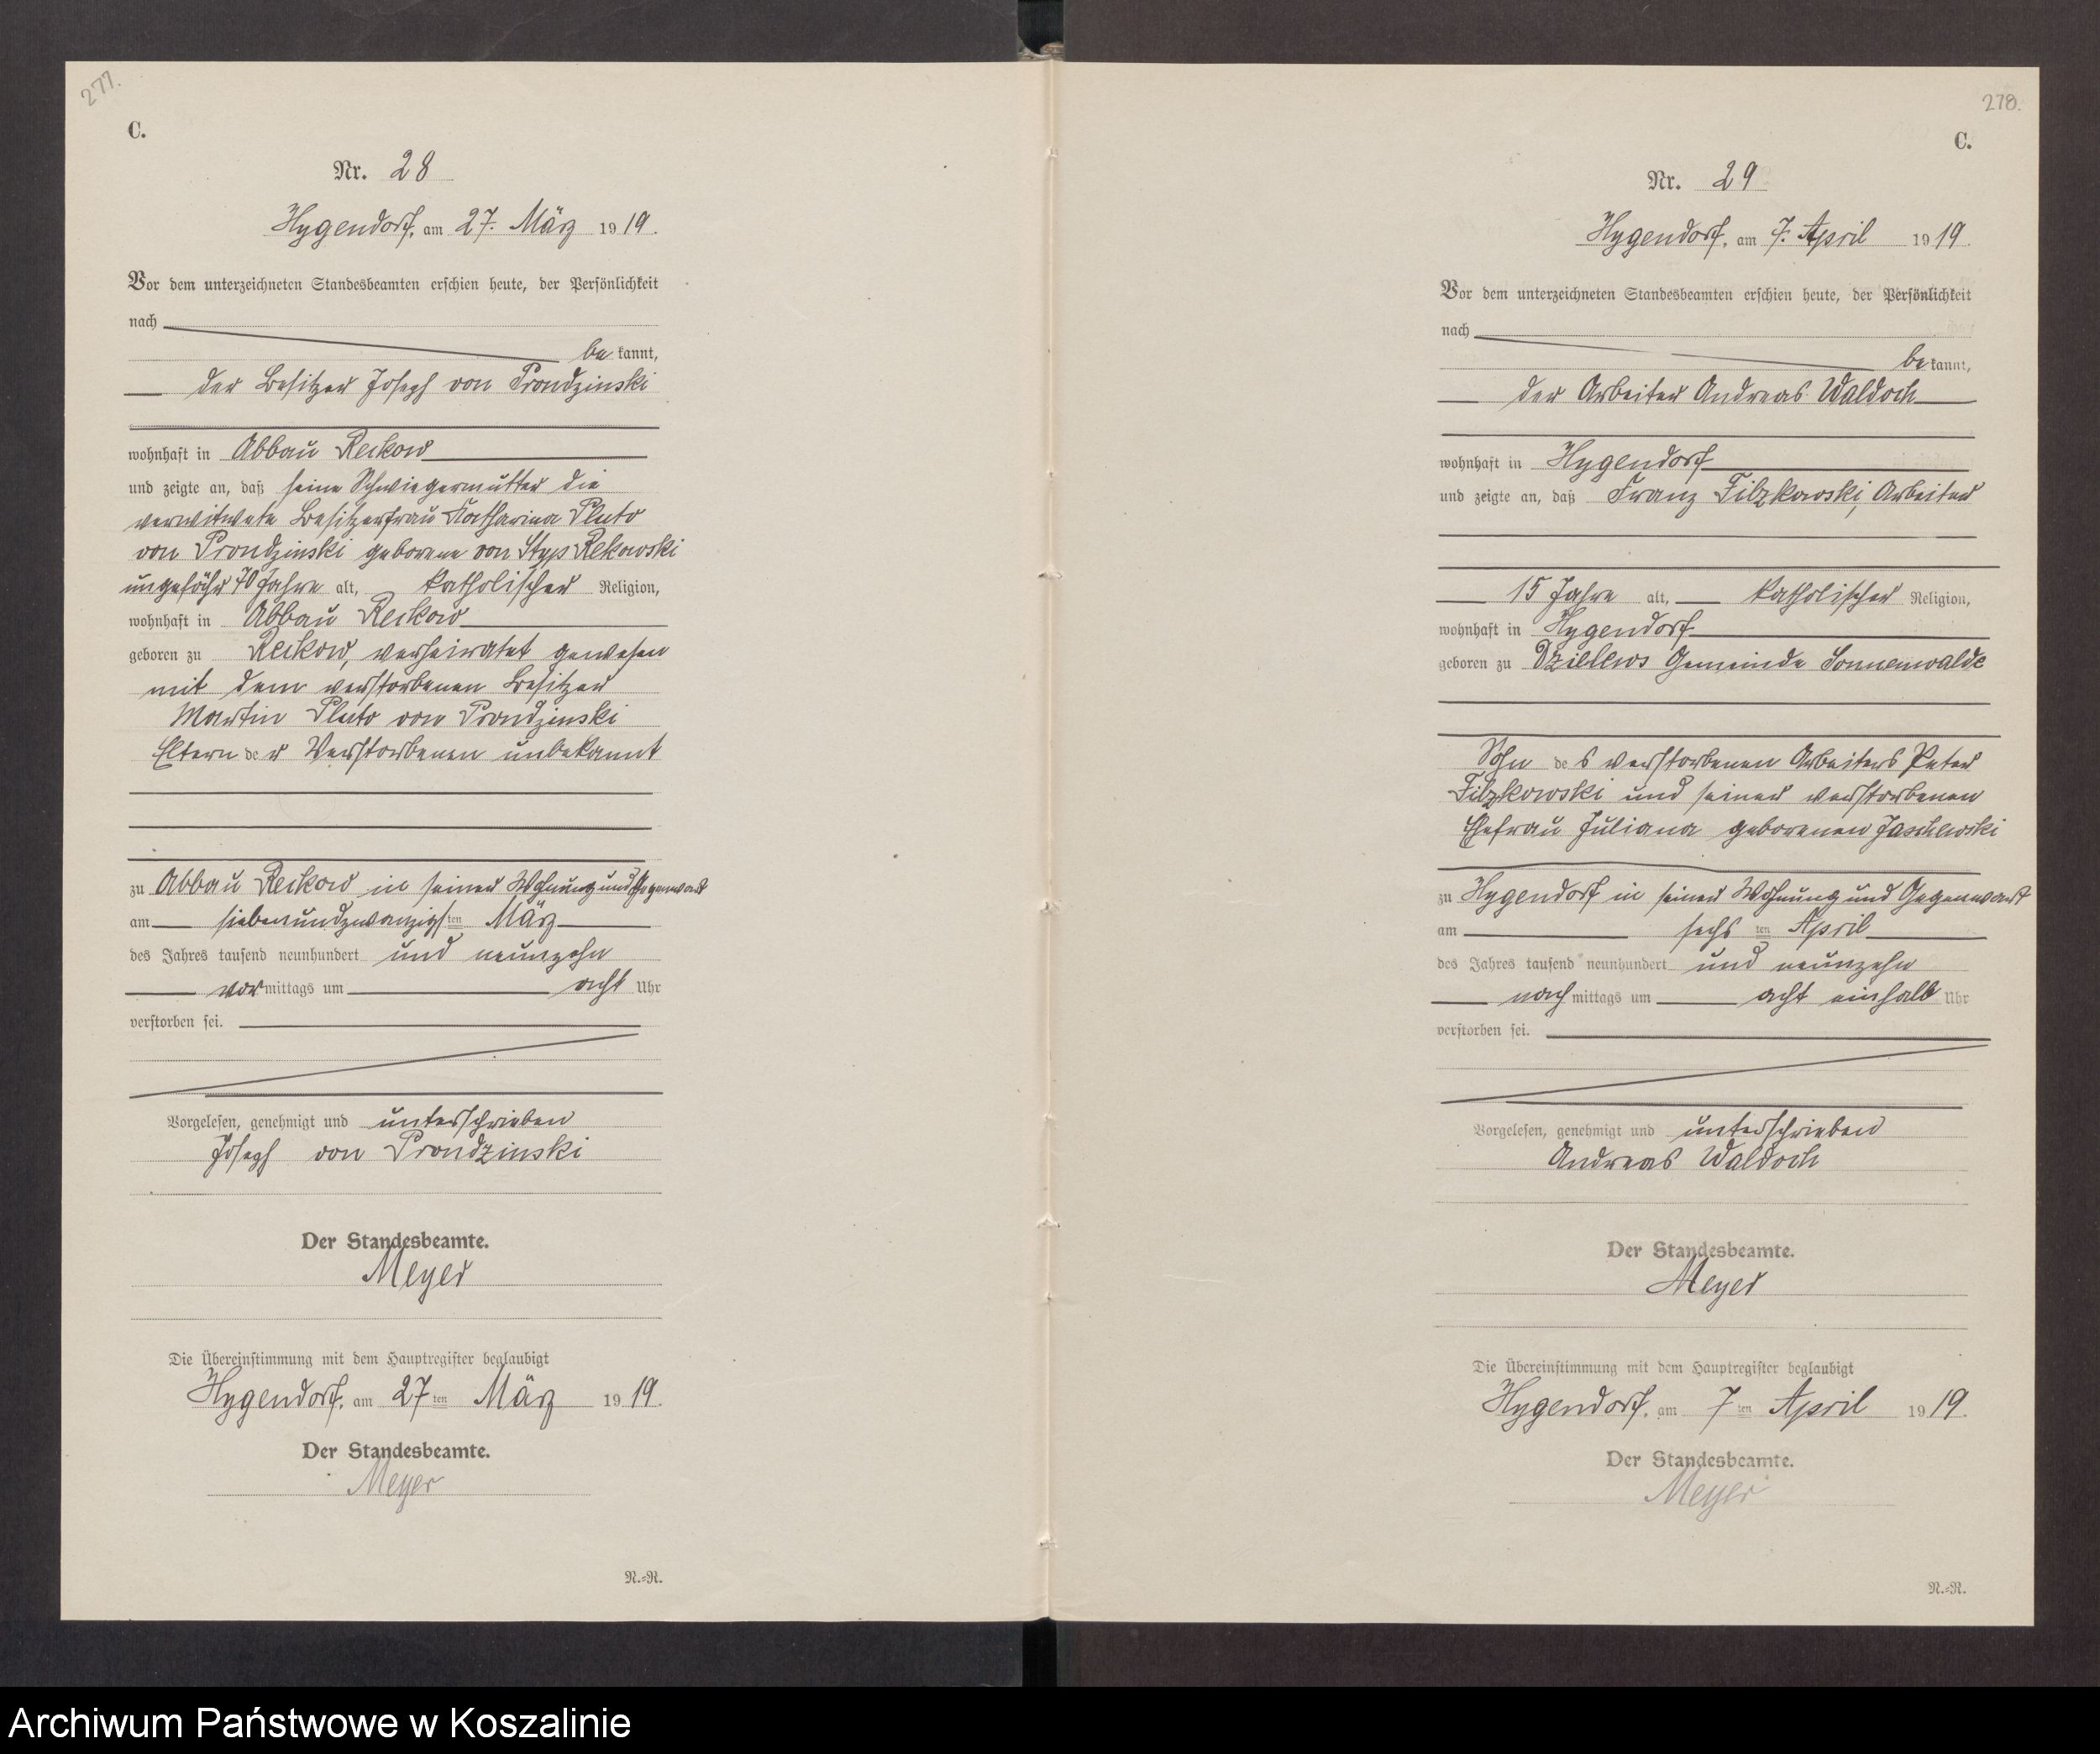 277.
C.
Nr. 28
Hygendorf, am 27. März 1919.
Vor dem unterzeichneten Standesbeamten erschien heute, der Persönlichkeit
nach
bekannt,
der Besitzer Joseph von Prondzinski
wohnhaft in Abbau Reckow
und zeigte an, daß seine Schwiegermutter die
verwitwete Besitzerfrau Katharina Pluto
von Prondzinski geborene von Styp Rekowski
ungefähr 70 Jahre alt, katholischer Religion,
wohnhaft in Abbau Reckow
geboren zu Reckow, verheiratet gewesen
mit dem verstorbenen Besitzer
Martin Pluto von Prondzinski
Eltern der Verstorbenen unbekannt
zu Abbau Reckow in seiner Wohnung und Gegenwart
am siebenundzwanzigsten März
des Jahres tausend neunhundert und neunzehn
vormittags um acht Uhr
verstorben sei.
Vorgelesen, genehmigt und unterschrieben
Joseph von Prondzinski
Der Standesbeamte.
Meyer
Die Übereinstimmung mit dem Hauptregister beglaubigt
Hygendorf, am 27ten März 1919.
Der Standesbeamte.
Meyer
N.=N.
278.
C.
Nr. 29
Hygendorf, am 7. April 1919.
Vor dem unterzeichneten Standesbeamten erschien heute, der Persönlichkeit
nach
bekannt,
der Arbeiter Andreas Waldoch
wohnhaft in Hygendorf
und zeigte an, daß Franz Filzkowski, Arbeiter
15 Jahre alt, katholischer Religion,
wohnhaft in Hygendorf
geboren zu Gemeinde Sonnenwalde
Sohn des verstorbenen Arbeiters Peter
Filzkowski und seiner verstorbenen
Ehefrau Juliana geborenen Jaschewski
zu Hygendorf in seiner Wohnung und Gegenwart
am sechsten April
des Jahres tausend neunhundert und neunzehn
nachmittags um acht einhalb Uhr
verstorben sei.
Vorgelesen, genehmigt und unterschrieben
Andreas Waldoch
Der Standesbeamte.
Meyer
Die Übereinstimmung mit dem Hauptregister beglaubigt
Hygendorf, am 7ten April 1919.
Der Standesbeamte.
Meyer
N.=N.
Archiwum Państwowe w Koszalinie